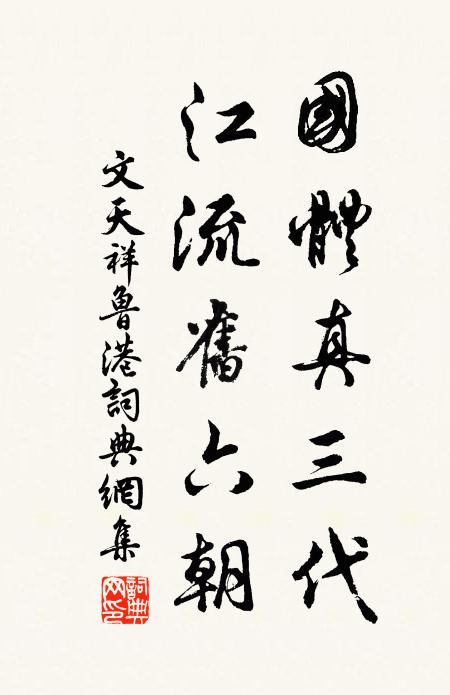 國體真三代
江流舊六朝
文天祥魯港詞典網集
詞典网印